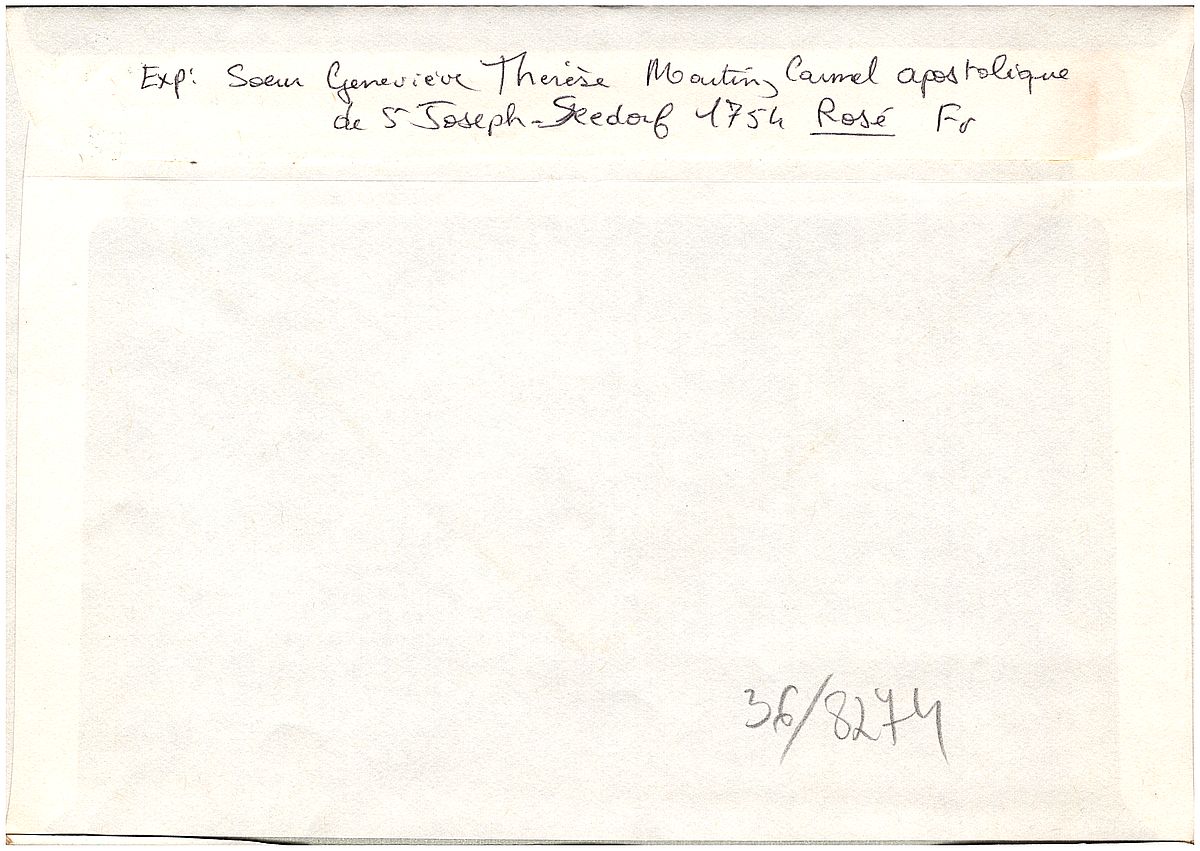 Exp: Soeur Geneviève Thérèse Martin, Carmel apostolique
de St Joseph - Seedorf 1754 Rosé Fr
36/8274